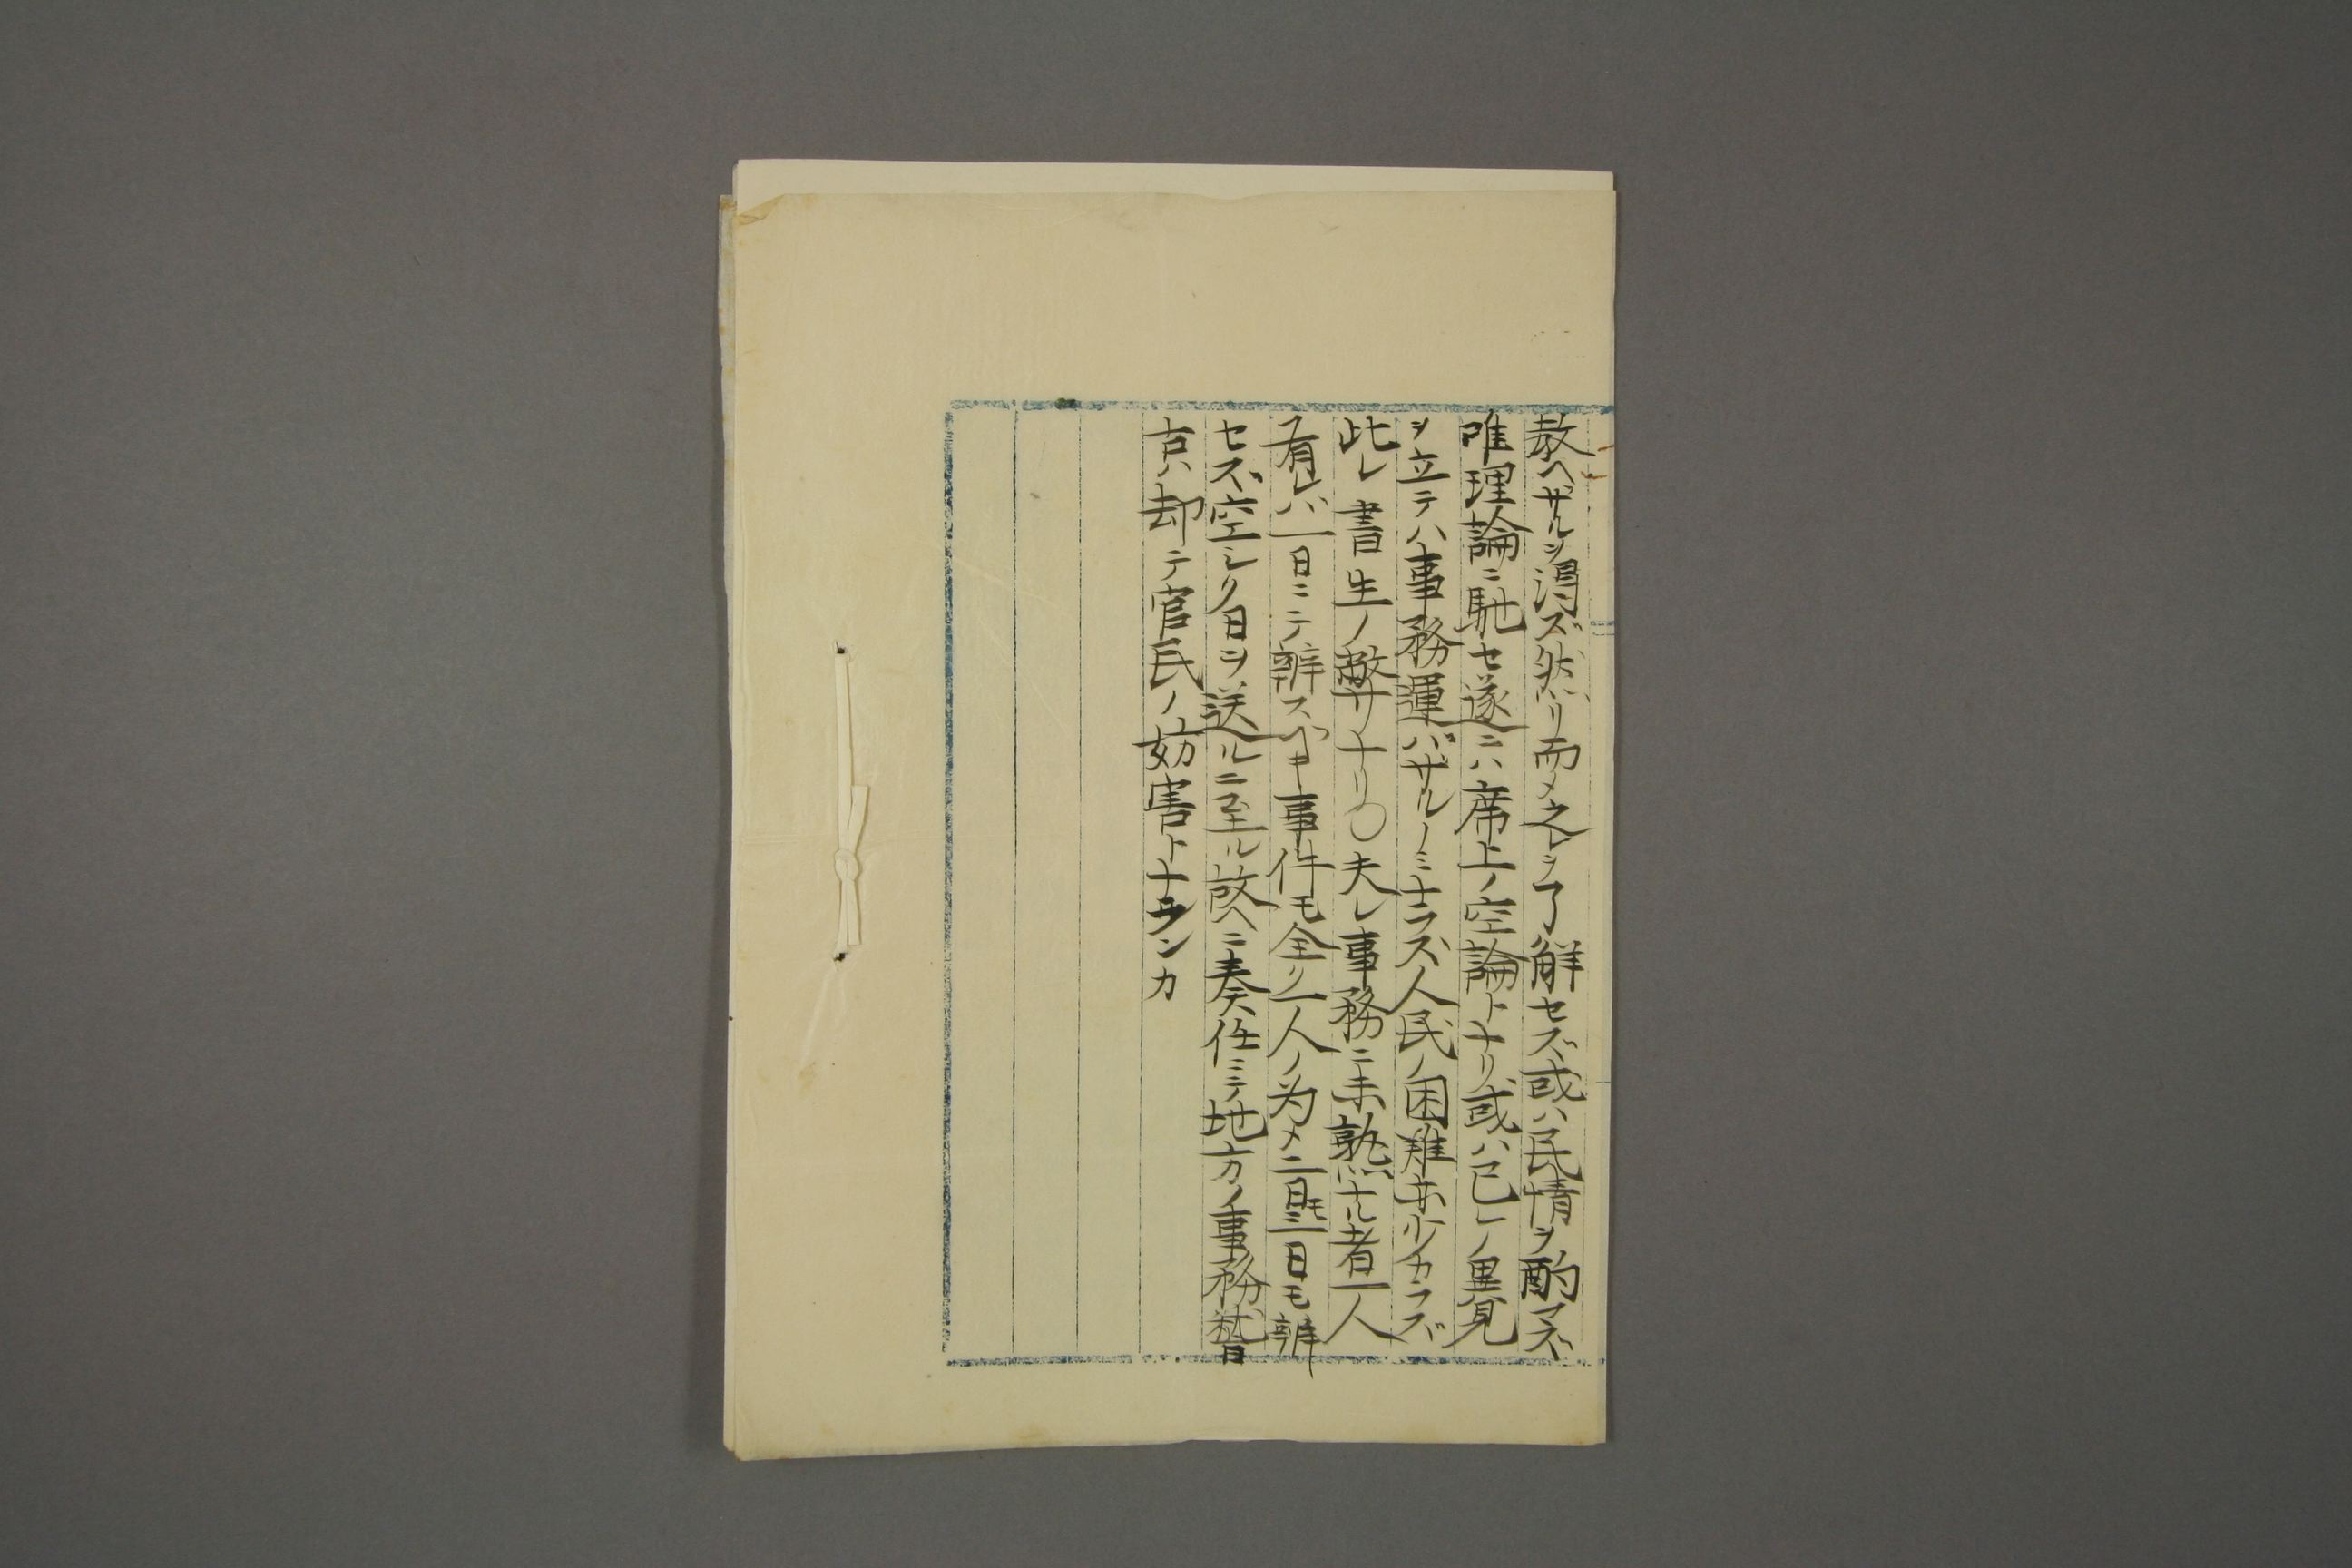 敎ヘザルヲ得ズ然リ而メ之ヲ了解セズ或ハ民情ヲ酌マズ
唯理論ニ馳セ遂ニハ席上ノ空論トナリ或ハ已ノ異見
ヲ立テハ事務運バザルノミナラズ人民ノ困難亦少カラズ
此レ書生ノ敝サナリ〇夫レ事務ニ未熟ナル者一人
有レバ一日ニテ辨スベキ事件モ全ク一人ノ为メ二日モ三日モ辨
セズ空シク日ヲ送ルニ至ル故ヘニ奏任ニテ地方ノ事務
古ハ却テ官民ノ妨害トナランカ